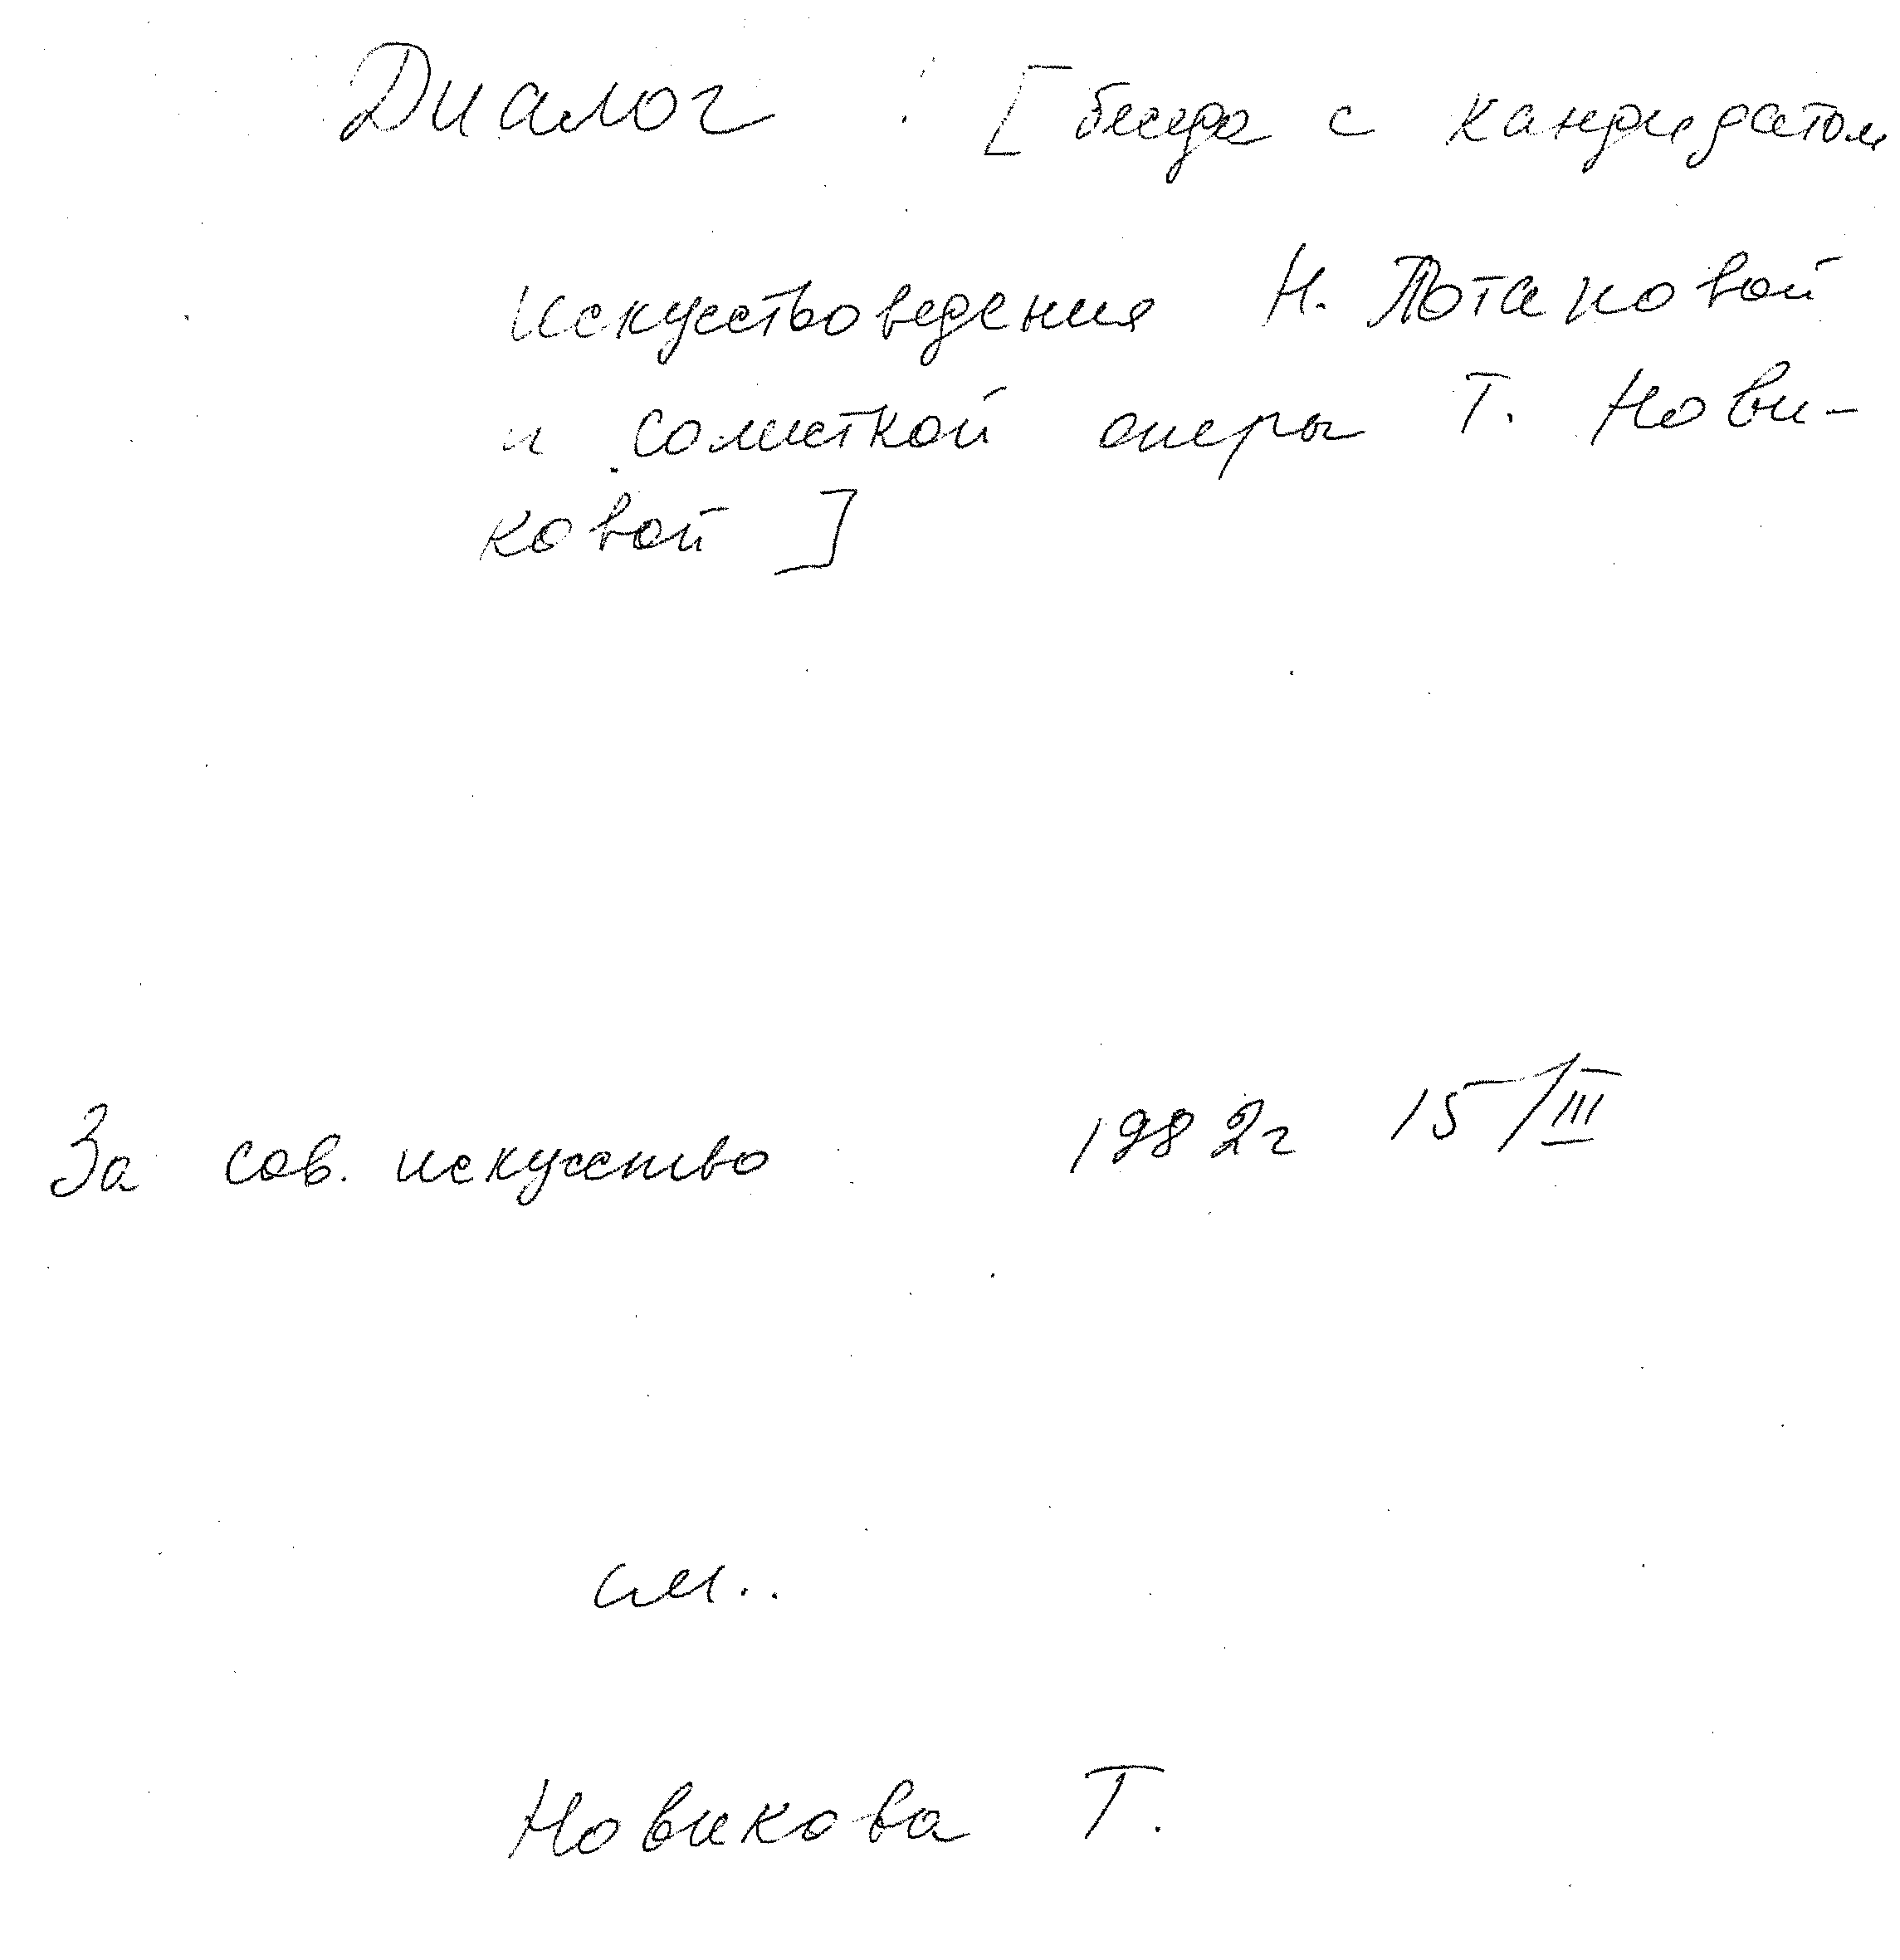 Диалог . [беседа с кандидатом
искусствоведения Н. Потаповой
и солисткой оперы Т. Нови-
ковой]
За сов. искусство 1982г 15/III
см..
Новикова Т.